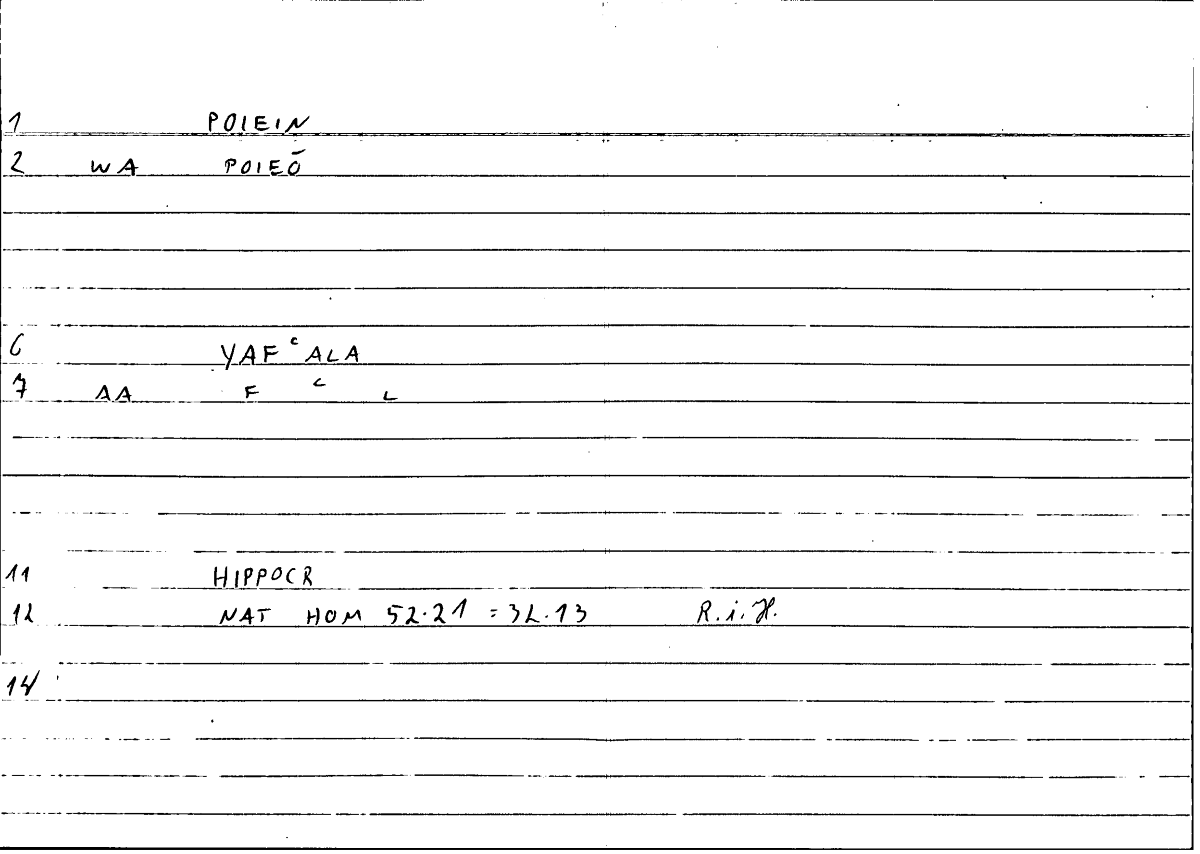 1 POIEIN
2 WA POIEŌ
6 YAFᶜALA
7 AA F ᶜ L
11 HIPPOCR
12 NAT HOM 52.21 = 32.13 R.i.H.
14